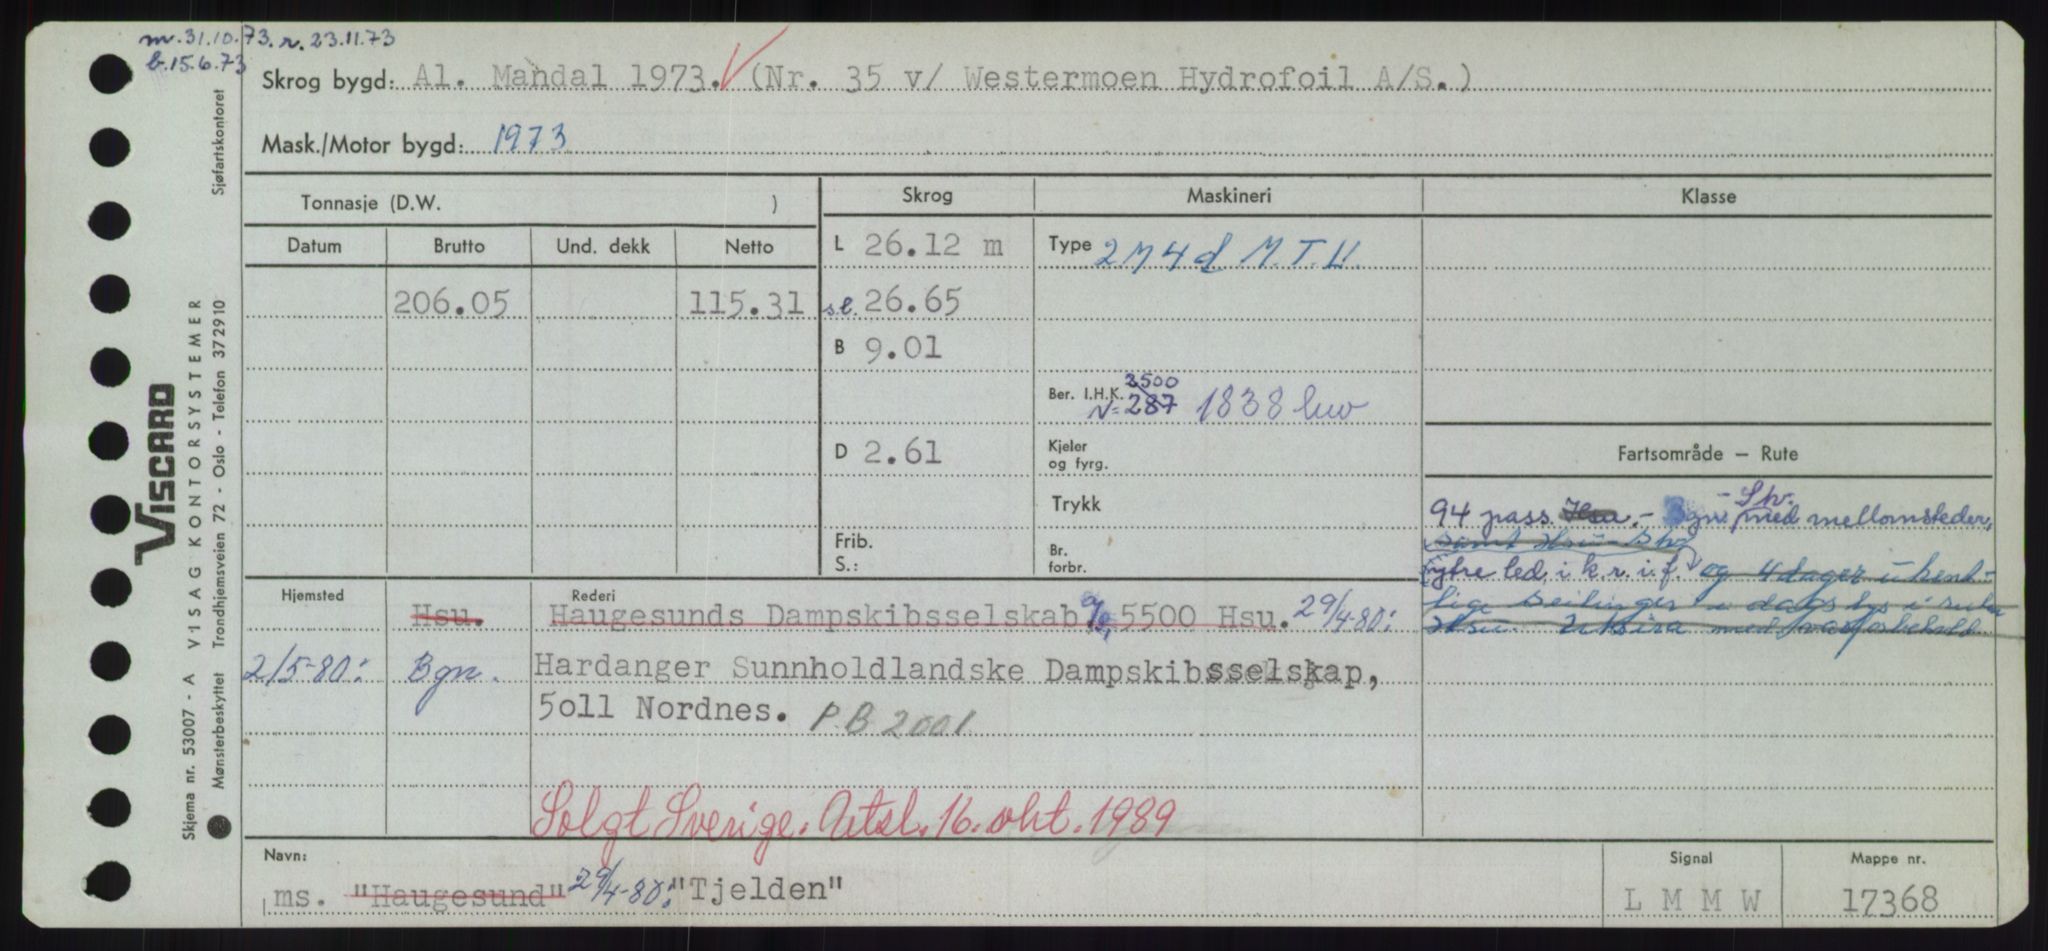 m. 31.10.73. r. 23.11.73
b. 15.6.73
Skrog bygd: Al. Mandal 1973. (Nr. 35 v/ Westermoen Hydrofoil A/S.)
Mask./Motor bygd: 1973
Tonnasje (D.W. )
Skrog
Maskineri
Klasse
Datum
Brutto
Und. dekk
Netto
L 26.12 m
Type 2 M 4 d M.T.U.
206.05
115.31
s.l. 26.65
B 9.01
Ber. I.H.K. 3500
N=287 1838 kw
D 2.61
Kjeler
og fyrg.
Fartsområde – Rute
Trykk
94 pass. Hsu. - Bgn. - Shv. med mellomsteder,
Frib.
S.:
Br.
forbr.
samt Hsu - Shv
ytre led, i k.r.i.f. og 4 dager ukent-
lige seilinger i dags lys i ruten
Hsu. Utsira med
Hjemsted
Rederi
Hsu.
Haugesunds Dampskibsselskab A/S, 5500 Hsu. 29/4-80:
2/5-80: Bgn.
Hardanger Sunnholdlandske Dampskibsselskap,
5oll Nordnes. P.B 2001
Solgt Sverige. Atsl. 16. okt. 1989
Navn:
ms. "Haugesund" 29/4-80: "Tjelden"
Signal
L M M W
Mappe nr.
17368
Sjøfartskontoret
VISCARD
VISAG KONTORSYSTEMER
Trondhjemsveien 72 - Oslo - Telefon 372910
Skjema nr. 53007 - A
Mønsterbeskyttet